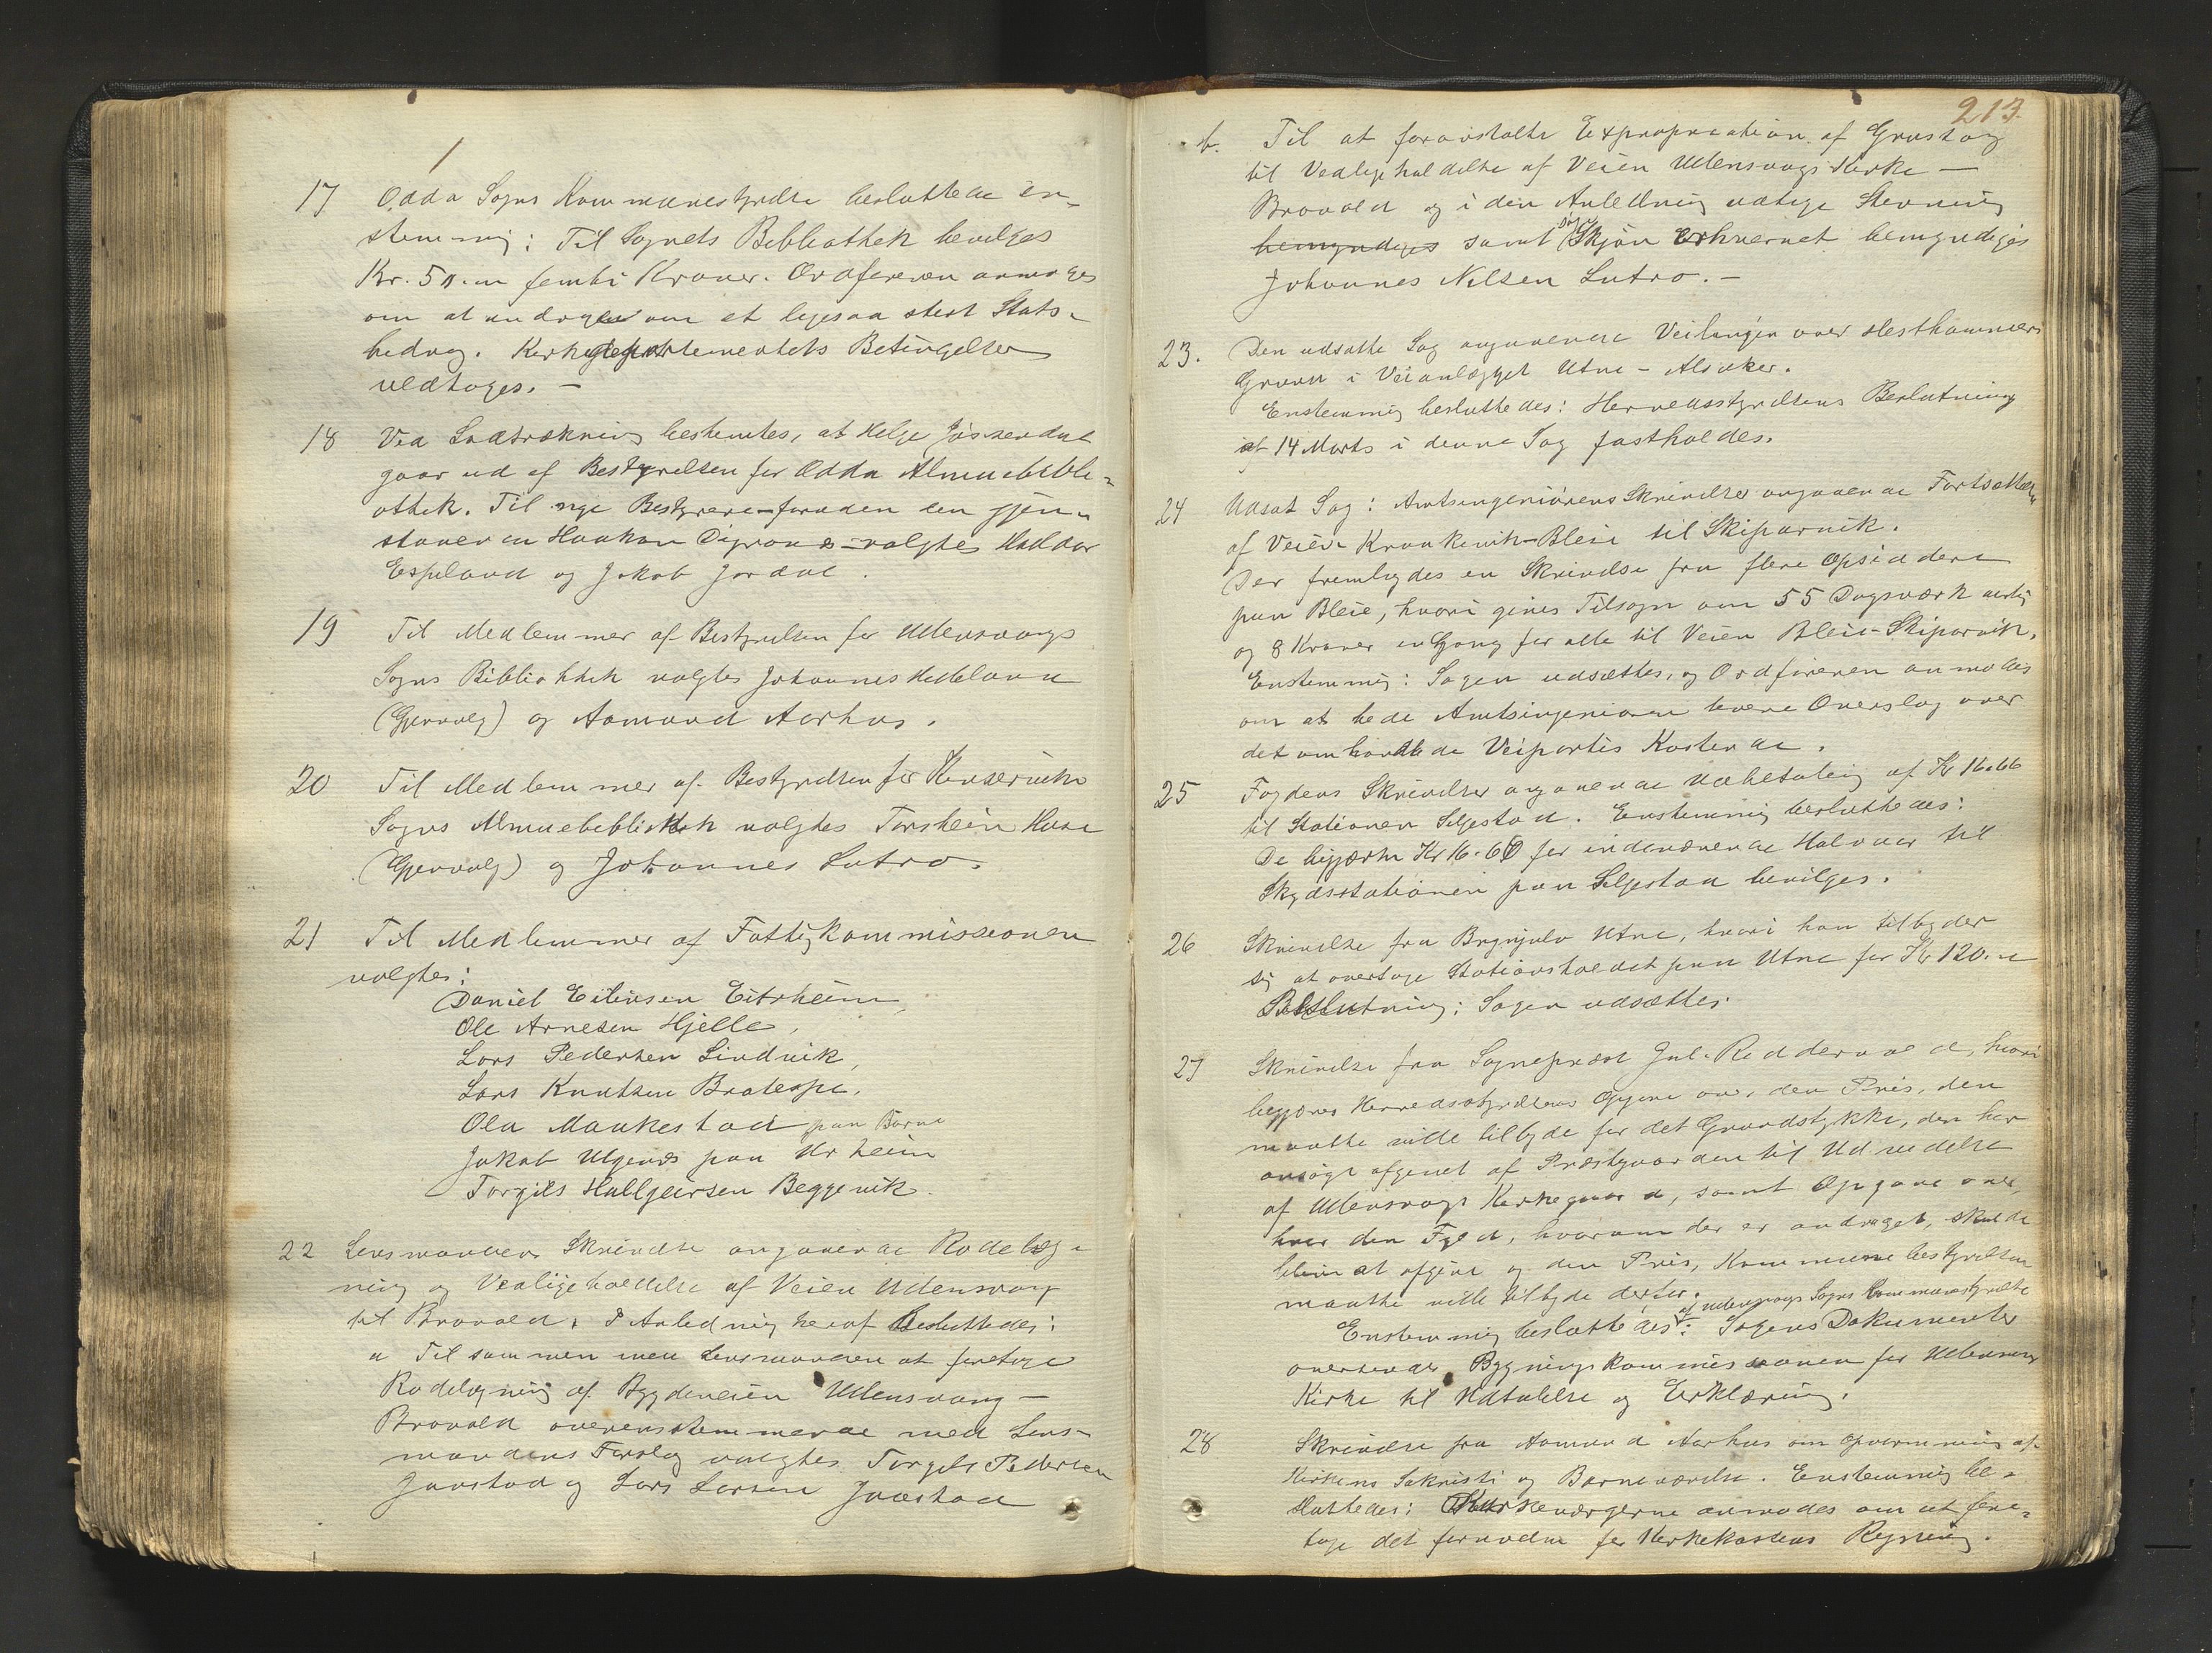 17 Odda Sogns Kommunestyrelse besluttede en-
stemmig: Til Sognets Bibliothek bevilges
Kr. 50.00 femti Kroner. Ordføreren anmodes
om at andrage om et ligesaa stort Stats-
bidrag. Kirkedepartementets Betingelser
vedtoges. -
18 Ved Lodtrækning bestemtes, at Helge Jøssendal
gaar ud af Bestyrelsen for Odda Almuebiblio-
othek. Til nye Bestyrere foruden den gjen-
staaende Haakon Digranes valgtes Haldor
Espeland og Jakob Jordal.
19 Til Medlemmer af Bestyrelsen for Ullensvangs
Sogns Bibliothek valgtes Johannes Hedeland
(Gjenvalg) og Aamund Aarhus.
20 Til Medlemmer af Bestyrelsen for Kinserviks
Sogns Almuebibliothek valgtes Torstein Huse
(Gjenvalg) og Johannes Lutro.
21 Til Medlemmer af Fattigkommissionen
valgtes:
Daniel Eilivsen Eitrheim,
Ole Arnesen Hjelle,
Lars Pedersen Lindvik,
Lars Knutsen Bratespe.
Ola Maakestad paa Børve
Jakob Utgenes paa Urheim
Torgils Hallgeirsen Beggevik.
22 Lensmandens Skrivelse angaaende Rodelæg-
ning og Vedligeholdelse af Veien Ullensvang
til Bravold. I Anledning heraf besluttedes:
a Til sammen med Lensmanden at foretage
Rodelægning af Bygdeveien Ullensvang -
Bravold overensstemmende med Lens-
mandens Forslag valgtes Torgils Pedersen
Jaastad og Lars Larsen Jaastad
213.
b. Til at foranstalte Expropriation af Grustag
til Vedligeholdelse af Veien Ullensvangs Kirke -
Bravold og i den Anledning udtage Stevning
bemyndiges samt Skjøn erhvervet bemyndiges
Johannes Nilsen Lutro. -
23. Den udsatte Sag angaaende Veilinjen over Hesthammers
Grund i Veianlægget Utne - Alsaker.
Enstemmig besluttedes: Herredsstyrelsens Beslutning
af 14 Marts i denne Sag fastholdes.
24 Udsat Sag: Amtsingeniørens Skrivelse angaaende Fortsættelse
af Veien Kraakevik-Bleie til Skiparvik.
Der fremlagdes en Skrivelse fra flere Opsiddere
paa Bleie, hvori gives Tilsagn om 55 Dagsværk aarlig
og 8 Kroner en Gang for alle til Veien Bleie-Skiparvik.
Enstemmig: Sagen udsættes, og Ordføreren anmodes
om at bede Amtsingeniøren levere Overslag over
det omhandlede Veipartis Kostende.
25 Fogdens Skrivelse angaaende Udbetaling af Kr 16.66
til Stationen Seljestad. Enstemmig besluttedes:
De begjærte Kr 16.66 for indeværende Halvaar til
Skydsstationen paa Seljestad bevilges.
26 Skrivelse fra Brynjulv Utne, hvori han tilbyder
sig at overtage Stationsholdet paa Utne for Kr 120.00
Beslutning: Sagen udsættes.
27 Skrivelse fra Sogneprest Jul. Riddervold, hvori
begjæres Herredsstyrelsens Opgave over den Pris, den
maatte ville tilbyde for det Grundstykke, den har
ansøgt afgivet af Præstegaarden til Udvidelse
af Ullensvangs Kirkegaard, samt Opgave over,
hvor den Fyld, hvorom der er andraget, skulde
blive at afgive og den Pris, Kommunebestyrelsen
maatte ville tilbyde derfor.
af Ullensvangs Sogns Kommunestyrelse
Enstemmig besluttedes: Sagens Dokumenter
oversendes Bygningskommissionen for Ullensvang
Kirke til Udtalelse og Erklæring.
28 Skrivelse fra Aamund Aarhus om Opvarmning af
Kirkens Sakristi og Barneværelse. Enstemmig be-
sluttedes: Kirkeværgerne anmodes om at fore-
tage det fornødne for Kirkekassens Regning.